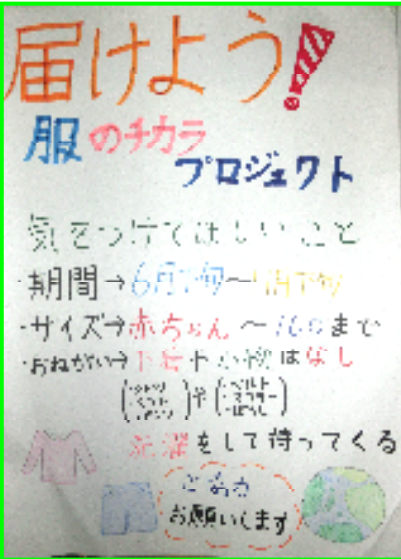 届けよう!
服のチカラ
プロジェクト
気をつけてほしいこと
・期間→6月下旬〜月下旬
・サイズ→赤ちゃん〜160まで
・おねがい→下着や小物はなし
ベルト
洗濯をして持ってくる
どうか
お願いします